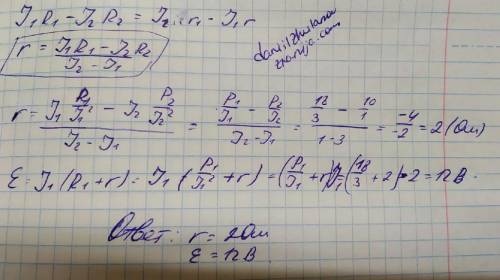 I₁R₁ - I₂R₂ = I₂r - I₁r
r = (I₁R₁ - I₂R₂)/(I₂ - I₁)
r = (I₁ P₁/I₁² - I₂ P₂/I₂²)/(I₂ - I₁) = (P₁/I₁ - P₂/I₂)/(I₂ - I₁) = (18/3 - 10/1)/(1-3) = -4/-2 = 2 (Ом)
ε = I₁(R₁ + r) = I₁(P₁/I₁² + r) = (P₁/I₁ + r)I₁ = (18/3 + 2)·2 = 12 В.
Ответ: r = 2Ом
ε = 12 В